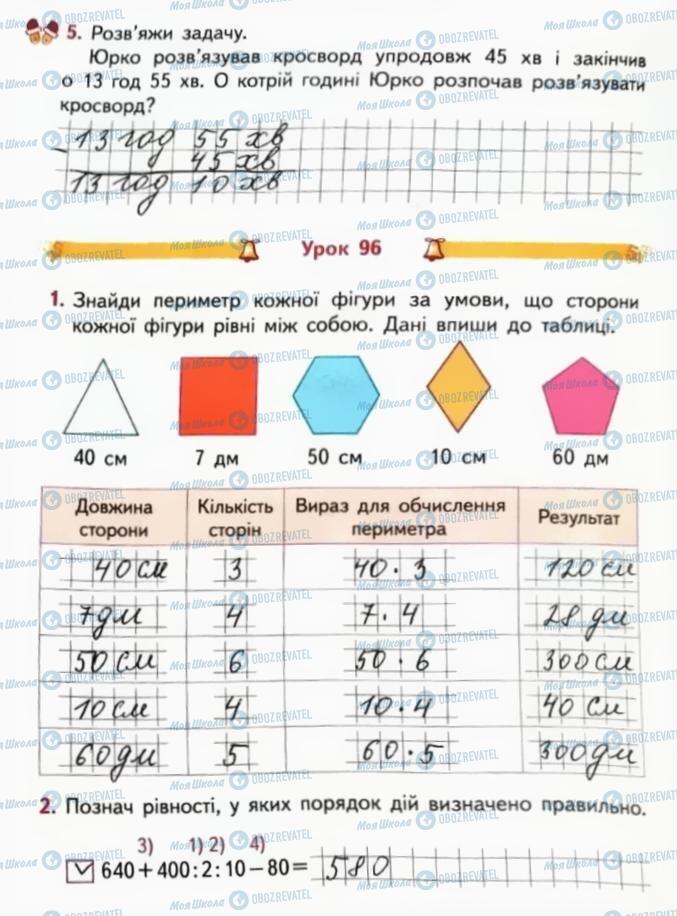 5. Розв'яжи задачу.
Юрко розв'язував кросворд упродовж 45 хв і закінчив
о 13 год 55 хв. О котрій годині Юрко розпочав розв'язувати
кросворд?
13 год 55 хв
45 хв
13 год 10 хв
Урок 96
1. Знайди периметр кожної фігури за умови, що сторони
кожної фігури рівні між собою. Дані впиши до таблиці.
40 см 7 дм 50 см 10 см 60 дм
Довжина сторони Кількість сторін Вираз для обчислення периметра Результат
40 см 3 40 · 3 120 см
7 дм 4 7 · 4 28 дм
50 см 6 50 · 6 300 см
10 см 4 10 · 4 40 см
60 дм 5 60 · 5 300 дм
2. Познач рівності, у яких порядок дій визначено правильно.
3) 1) 2) 4)
640 + 400 : 2 : 10 – 80 = 580
МояШкола OBOZREVATEL